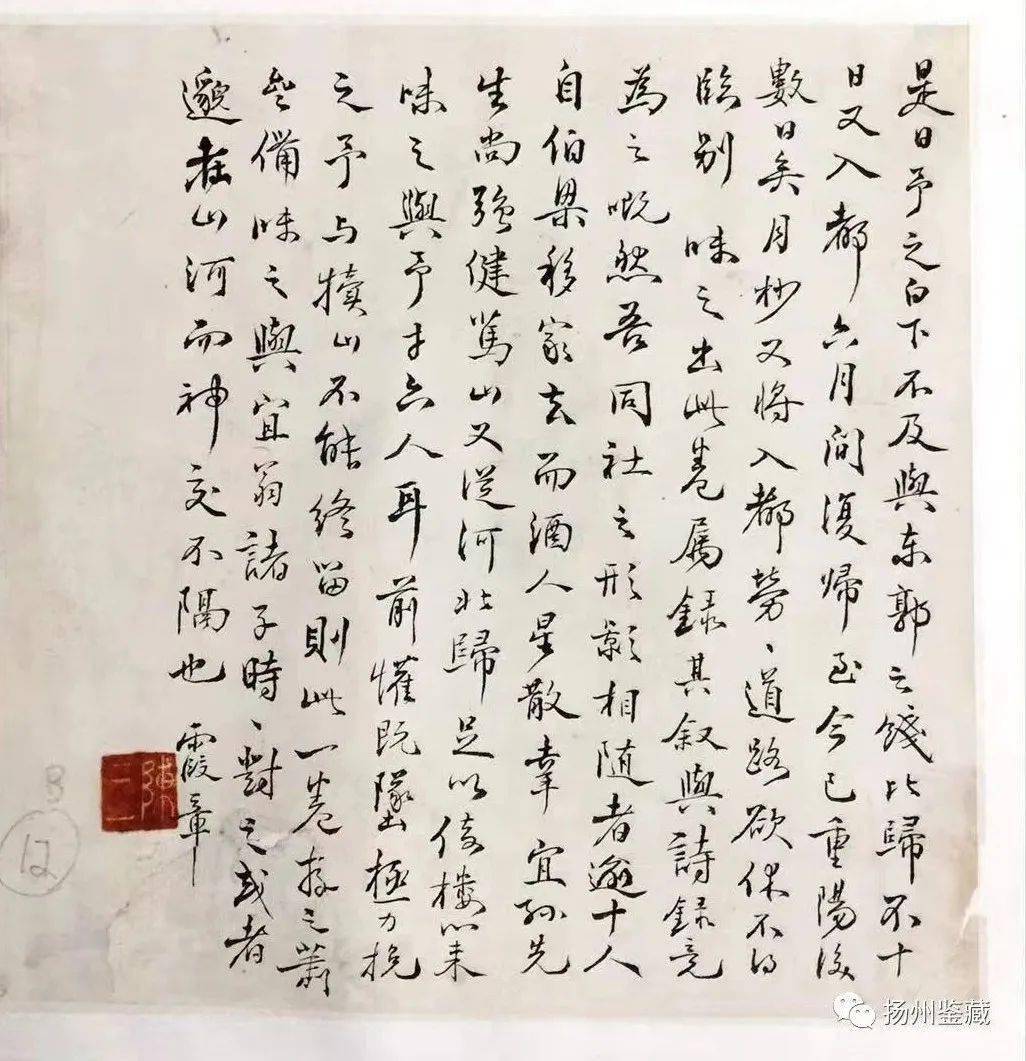 是日予之白下不及與東郭之餞比歸不十
日又入都六月間復歸至今已重陽後
數日矣月杪又將入都勞、道路欲休不得
臨别味之出此卷属録其叙與詩録竟
為之嘅然吾同社之形影相随者逾十人
自伯果移家去而酒人星散幸宜孙先
生尚强健篤山又從河北歸足以倚樓以来
味之與予才六人耳前懽既墜極力挽
之予与犢山不能終留則此一卷存之蕭
寺備味之與宜翁諸子時、對之或者
邈在山河而神交不隔也霞章
扬州鉴藏